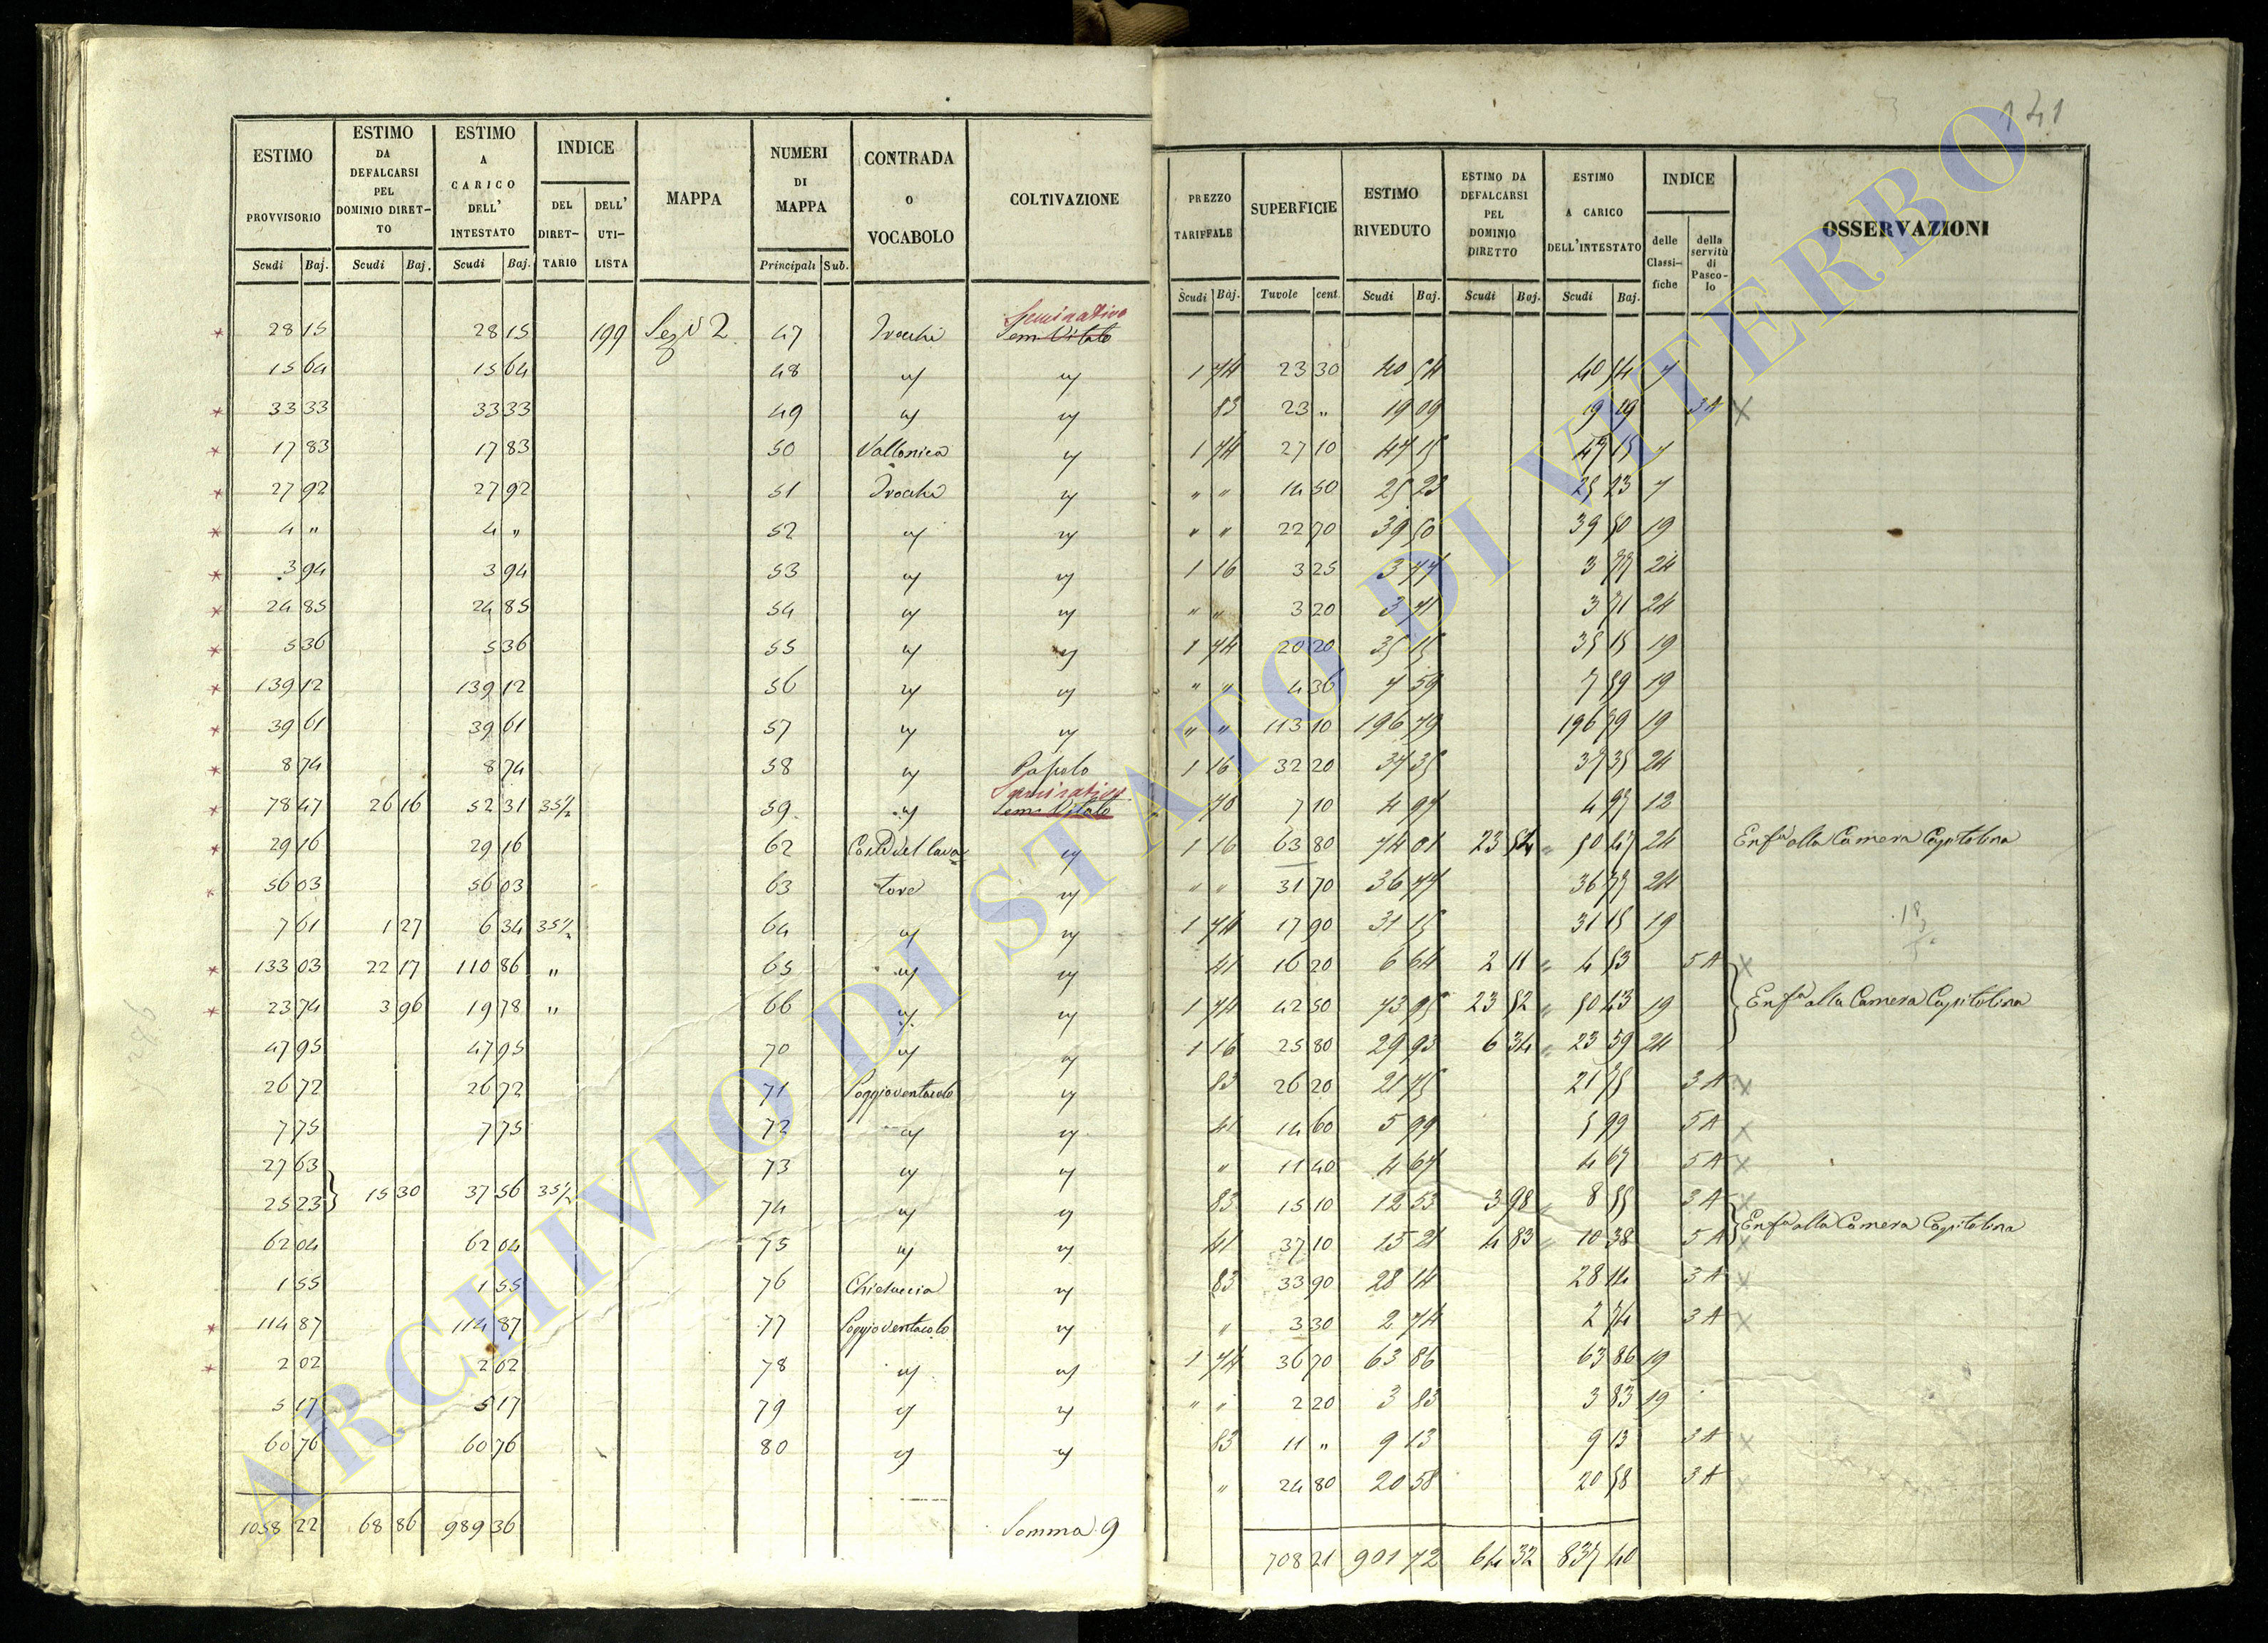 141
ESTIMO PROVVISORIO | ESTIMO DA DEFALCARSI PEL DOMINIO DIRET-TO | ESTIMO A CARICO DELL' INTESTATO | INDICE | MAPPA | NUMERI DI MAPPA | CONTRADA o VOCABOLO | COLTIVAZIONE
DEL DIRET-TARIO | DELL' UTI-LISTA
Scudi | Baj. | Scudi | Baj. | Scudi | Baj. | Principali | Sub.
28 15 | 28 15 | 199 | 2 | 47 | Trocchi | Seminativo Sem. Vitato
15 64 | 15 64 | 48
33 33 | 33 33 | 49
17 83 | 17 83 | 50 | Vallonica
27 92 | 27 92 | 51 | Trocchi
4 " | 4 " | 52
3 94 | 3 94 | 53
24 85 | 24 85 | 54
5 36 | 5 36 | 55
139 12 | 139 12 | 56
39 61 | 39 61 | 57
8 74 | 8 74 | 58 | Pascolo
78 47 | 26 16 | 52 31 | 35½ | 59 | Seminativo Sem. Vitato
29 16 | 29 16 | 62 | Costa del Lava
56 03 | 56 03 | 63 | tore
7 61 | 1 27 | 6 34 | 35½ | 64
133 03 | 22 17 | 110 86 | " | 65
23 74 | 3 96 | 19 78 | " | 66
47 95 | 47 95 | 70
26 72 | 26 72 | 71 | Poggioventacolo
7 75 | 7 75 | 72
27 63 | 73
25 23 } 15 30 | 37 56 | 35½ | 74
62 04 | 62 04 | 75
1 55 | 1 55 | 76 | Chietuccia
114 87 | 114 87 | 77 | Poggioventacolo
2 02 | 2 02 | 78
5 17 | 5 17 | 79
60 76 | 60 76 | 80
1058 22 | 68 86 | 989 36 | Somma 9
PREZZO TARIFFALE | SUPERFICIE | ESTIMO RIVEDUTO | ESTIMO DA DEFALCARSI PEL DOMINIO DIRETTO | ESTIMO A CARICO DELL'INTESTATO | INDICE | OSSERVAZIONI
delle Classi-fiche | della servitù di Pasco-lo
Scudi | Baj. | Tavole | cent. | Scudi | Baj. | Scudi | Baj. | Scudi | Baj.
1 74 | 23 30 | 40 54 | 40 54 | 7
83 | 23 " | 19 09 | 19 09 | 3 A
1 74 | 27 10 | 47 15 | 47 15 | 7
" " | 14 50 | 25 23 | 25 23 | 7
" " | 22 70 | 39 50 | 39 50 | 19
1 16 | 3 25 | 3 77 | 3 77 | 24
" " | 3 20 | 3 71 | 3 71 | 24
1 74 | 20 20 | 35 15 | 35 15 | 19
" " | 4 36 | 7 59 | 7 59 | 19
" " | 113 10 | 196 79 | 196 79 | 19
1 16 | 32 20 | 37 35 | 37 35 | 24
70 | 7 10 | 4 97 | 4 97 | 12
1 16 | 63 80 | 74 01 | 23 54 | 50 47 | 24 | Enfa alla Camera Capitolina
" " | 31 70 | 36 77 | 36 77 | 24
1 74 | 17 90 | 31 15 | 31 15 | 19
41 | 16 20 | 6 64 | 2 11 | 4 53 | 5 A
1 74 | 42 50 | 73 95 | 23 52 | 50 43 | 19 | Enfa alla Camera Capitolina
1 16 | 25 80 | 29 93 | 6 34 | 23 59 | 24
83 | 26 20 | 21 75 | 21 75 | 3 A
41 | 14 60 | 5 99 | 5 99 | 5 A
" | 11 40 | 4 67 | 4 67 | 5 A
83 | 15 10 | 12 53 | 3 98 | 8 55 | 3 A
41 | 37 10 | 15 21 | 4 83 | 10 38 | 5 A | Enfa alla Camera Capitolina
83 | 33 90 | 28 14 | 28 14 | 3 A
" | 3 30 | 2 74 | 2 74 | 3 A
1 74 | 36 70 | 63 86 | 63 86 | 19
" " | 2 20 | 3 83 | 3 83 | 19
83 | 11 " | 9 13 | 9 13 | 3 A
" | 24 80 | 20 58 | 20 58 | 3 A
708 21 | 901 72 | 64 32 | 837 40
ARCHIVIO DI STATO DI VITERBO